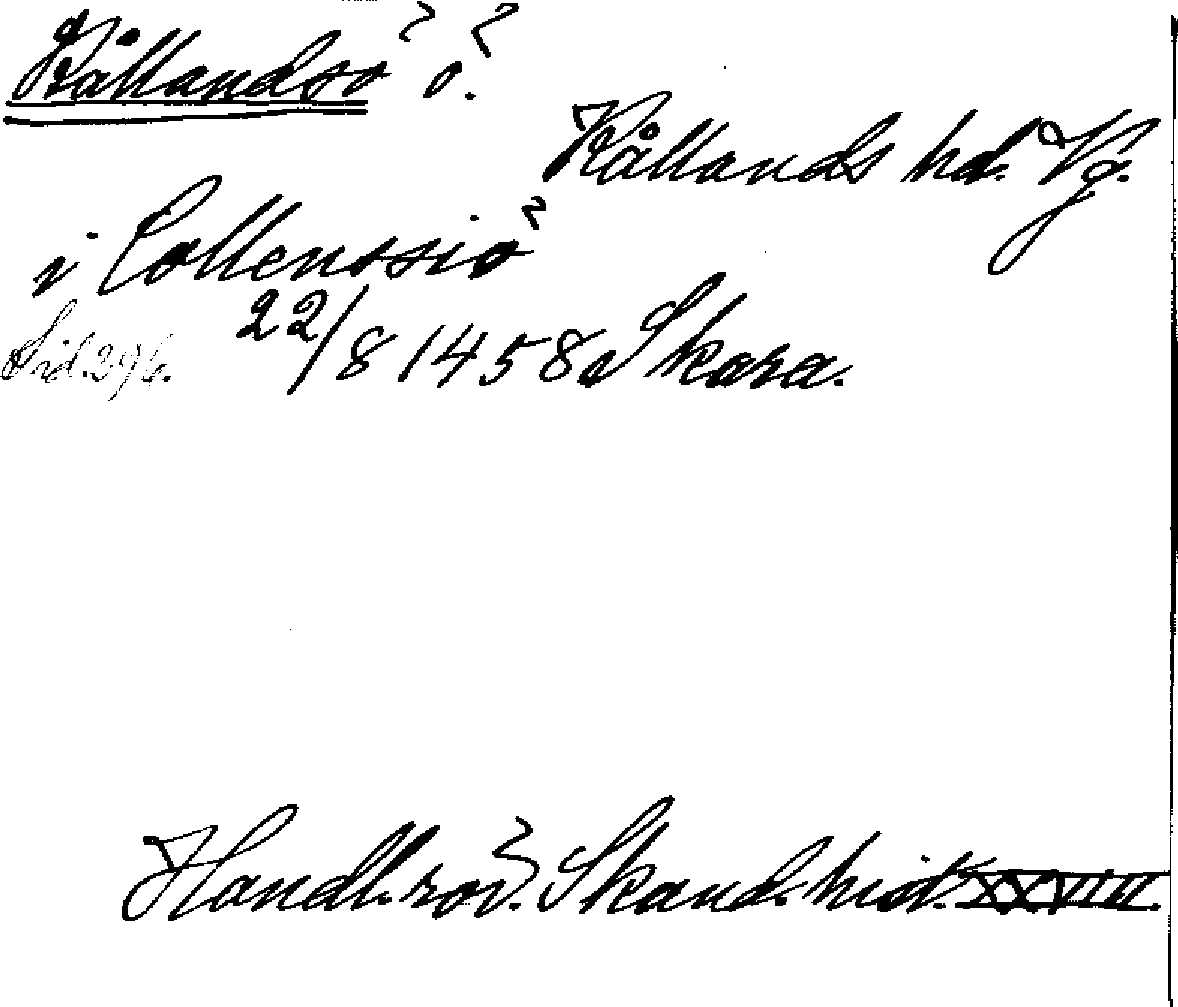 Kållandsö ö.
Kållands hd. Vg.
i Collenssiö
Sid. 296. 22/8 1458 Skara.
Handl. rör. Skand. hist. XXVIII.